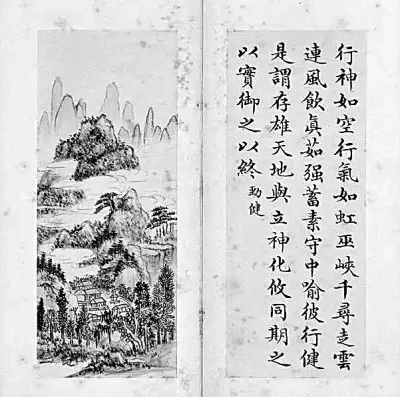 行神如空行氣如虹巫峽千尋走雲
連風飲眞茹强蓄素守中喻彼行健
是謂存雄天地與立神化攸同期之
以實御之以終
勁健